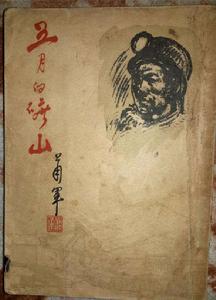 五月的矿山
萧军